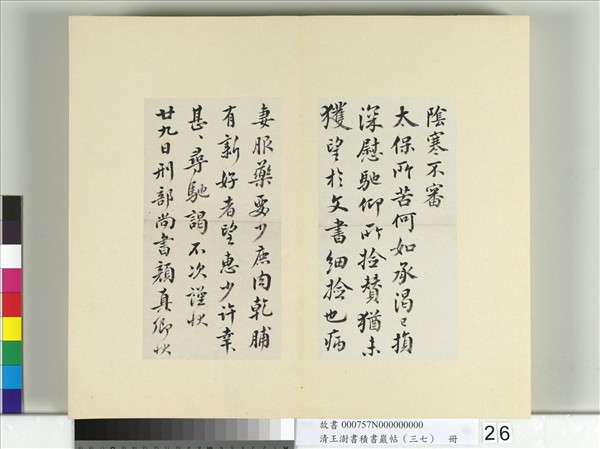 陰寒不審
太保所苦何如承渴已損
深慰馳仰所捡贊猶未
獲望於文書細捡也病
妻服藥要少鹿肉乾脯
有新好者望惠少許幸
甚、尋馳謁不次謹狀
廿九日刑部尚書顏真卿狀
故書 000757N000000000
清王澍書積書巖帖（三七） 冊
26